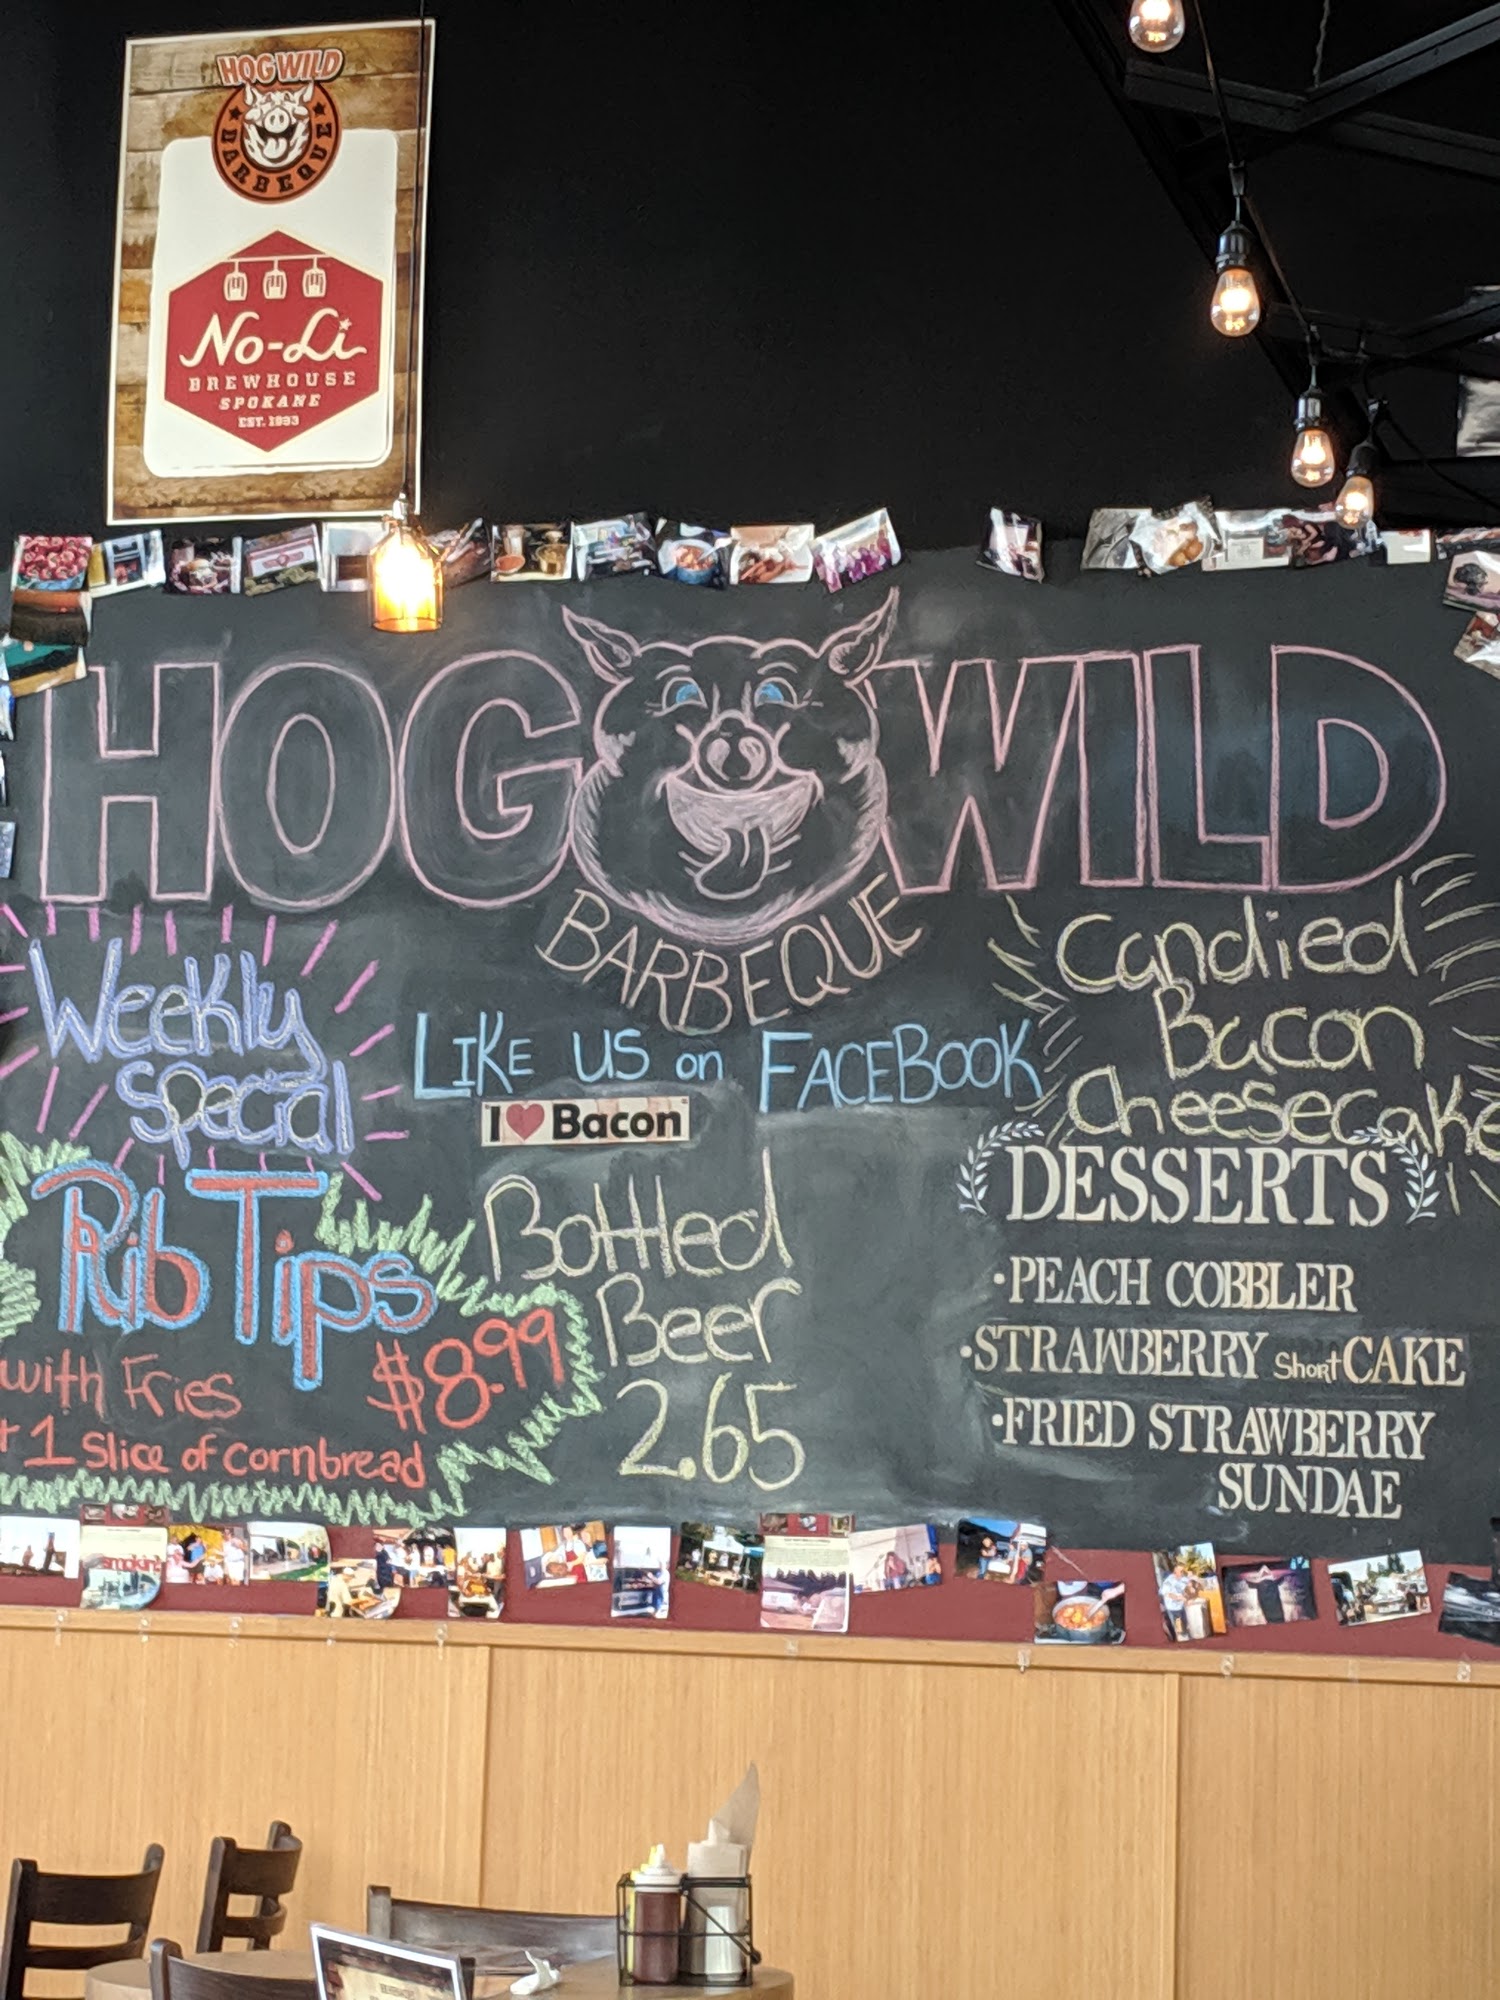 HOG WILD
BARBEQUE
No-Li
BREWHOUSE
SPOKANE
EST. 1993
HOG WILD
BARBEQUE
Weekly
Special
Rib Tips
with Fries $8.99
1 Slice of cornbread
LIKE US on FACEBOOK
"I ♥ Bacon"
Bottled
Beer
2.65
Candied
Bacon
Cheesecake
DESSERTS
•PEACH COBBLER
•STRAWBERRY Short CAKE
•FRIED STRAWBERRY
SUNDAE
smokin'